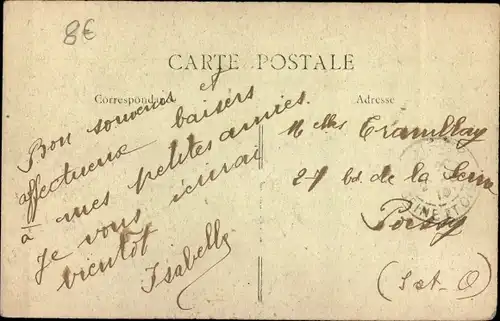 8€
CARTE POSTALE
Correspondance
Adresse
Bon souvenir et
affectueux baisers
à mes petites amies.
Je vous écrirai
bientôt
Isabelle
Melles Tramblay
27 bd. de la Seine
Poissy
(S et O)